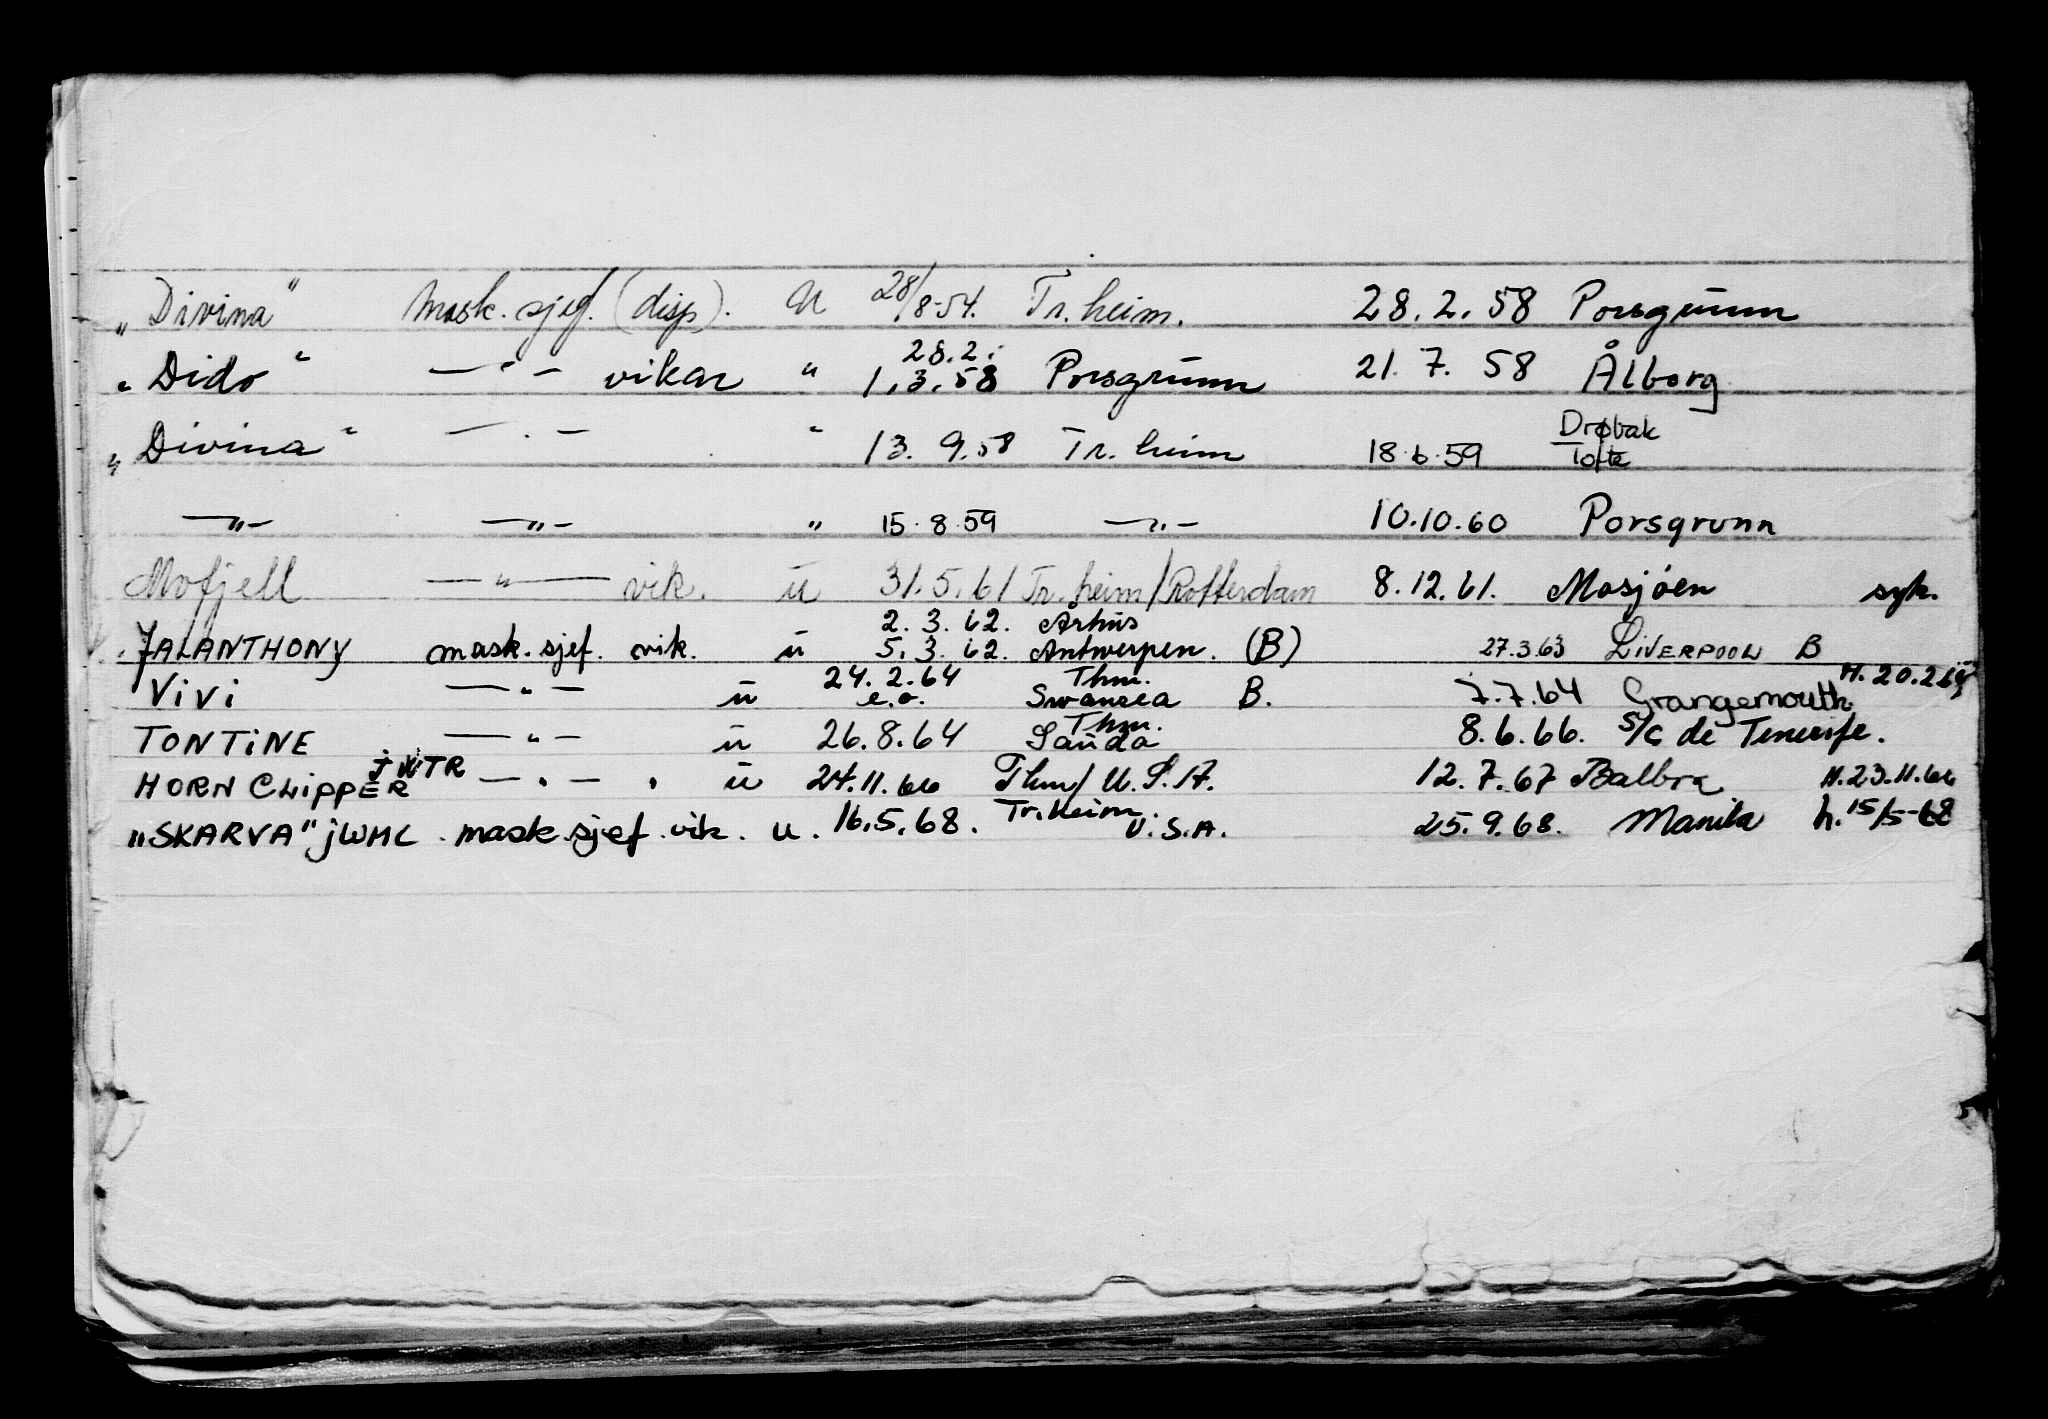 „Divina" mask. sjef. (disp). U 28/8-54. Tr.heim. 28.2.58 Porsgrunn
„Dido" —"— vikar " 28.2. 1.3.58 Porsgrunn 21.7.58 Ålborg
„Divina" —"— " 13.9.58 Tr.heim 18.6.59 Drøbak Tofte
—"— —"— " 15.8.59 —"— 10.10.60 Porsgrunn
Mofjell —"— vik. u 31.5.61 Tr.heim/Rotterdam 8.12.61. Mosjøen syk.
JALANTHONY mask. sjef. vik. u 2.3.62. Århus 5.3.62. Antwerpen. (B) 27.3.63 LIVERPOOL B
ViVi —"— u 24.2.64 e.o. Thm. Swansea B. 7.7.64 Grangemouth. H. 20.2.64
TONTiNE —"— u 26.8.64 Thm. Sauda 8.6.66. S/C de Tenerife.
HORN CLiPPER jWTR —"— " u 24.11.66 Thm/U.S.A. 12.7.67 Balboa H.23.11.66
„SKARVA" jWML. mask.sjef.vik. u. 16.5.68. Tr.heim U.S.A. 25.9.68. Manila h. 15/5-68